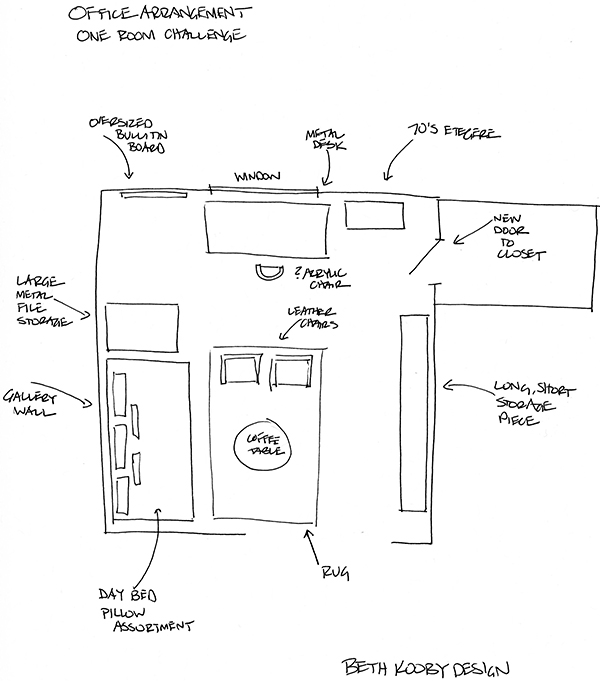 OFFICE ARRANGEMENT
ONE ROOM CHALLENGE
OVERSIZED
BULLITIN
BOARD
WINDOW
METAL
DESK
70'S ETEGERE
NEW
DOOR
TO
CLOSET
? ACRYLIC
CHAIR
LARGE
METAL
FILE
STORAGE
LEATHER
CHAIRS
GALLERY
WALL
COFFEE
TABLE
LONG, SHORT
STORAGE
PIECE
RUG
DAY BED
PILLOW
ASSORTMENT
BETH KOOBY DESIGN